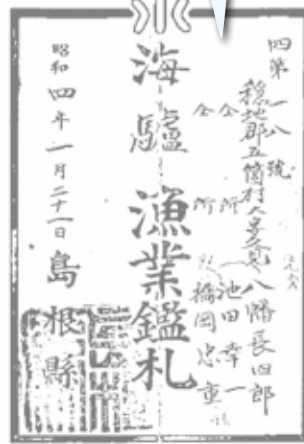 四第一八號
穏地郡五箇村久見 八幡長四郎
仝所 池田幸一
仝所 橋岡忠重
海驢漁業鑑札
昭和四年一月二十一日
島根縣